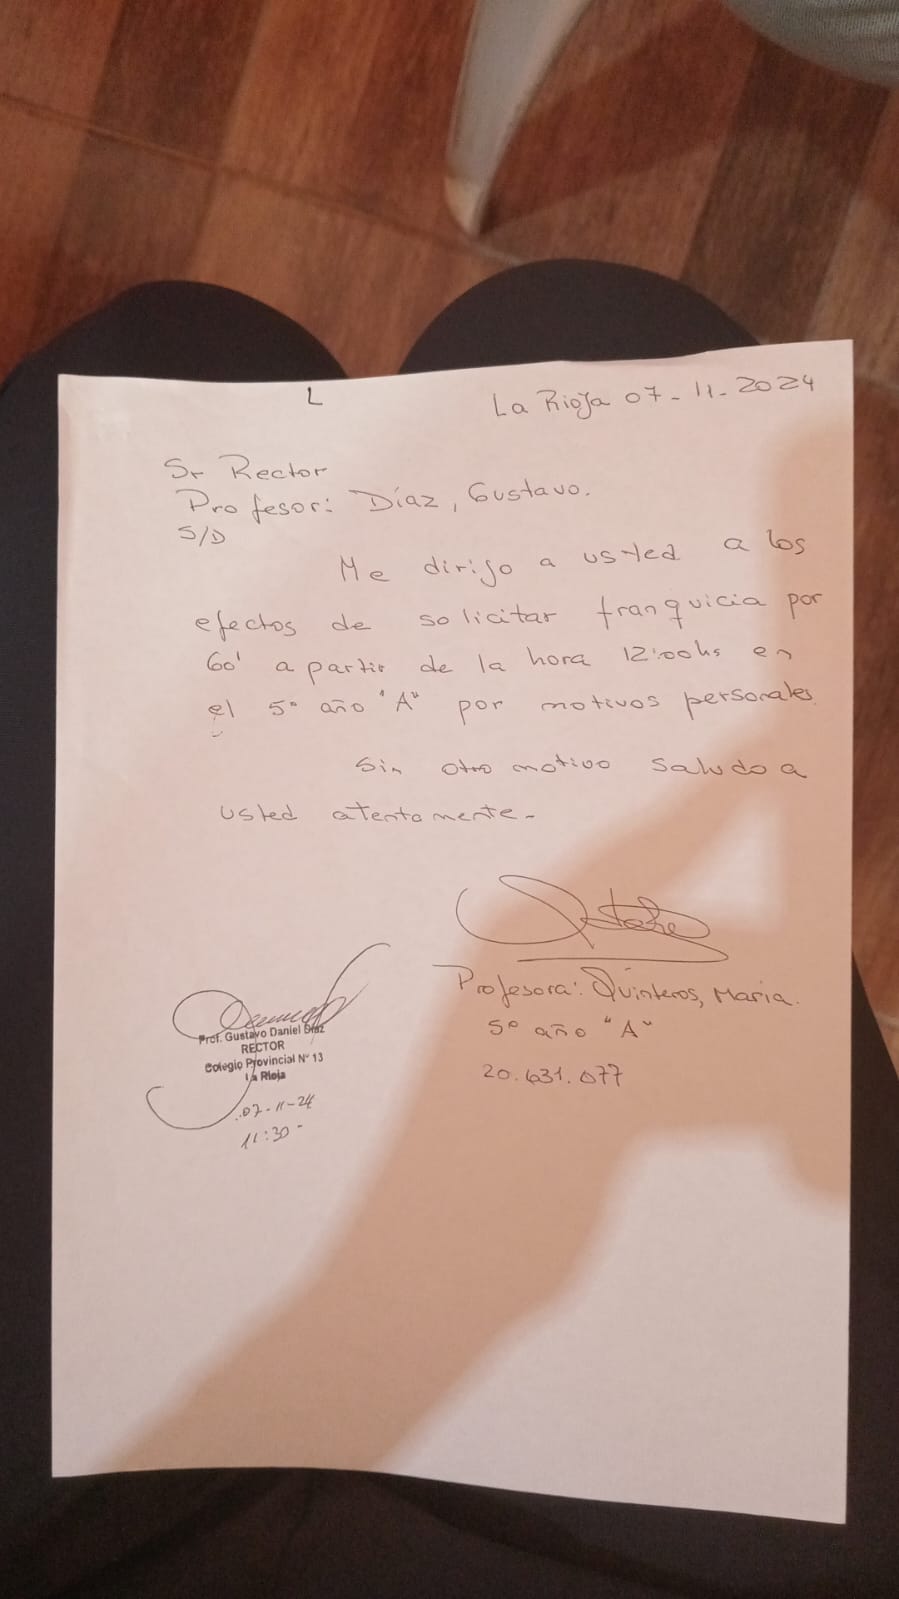 L
La Rioja 07-11-2024
Sr Rector
Profesor: Díaz, Gustavo.
S/D
Me dirijo a usted a los
efectos de solicitar franquicia por
60' a partir de la hora 12:00hs en
el 5º año "A" por motivos personales
Sin otro motivo saludo a
usted atentamente-
Profesora: Quinteros, Maria.
5º año "A"
20.631.077
Prof. Gustavo Daniel Díaz
RECTOR
Colegio Provincial N° 13
La Rioja
07-11-24
11:30-